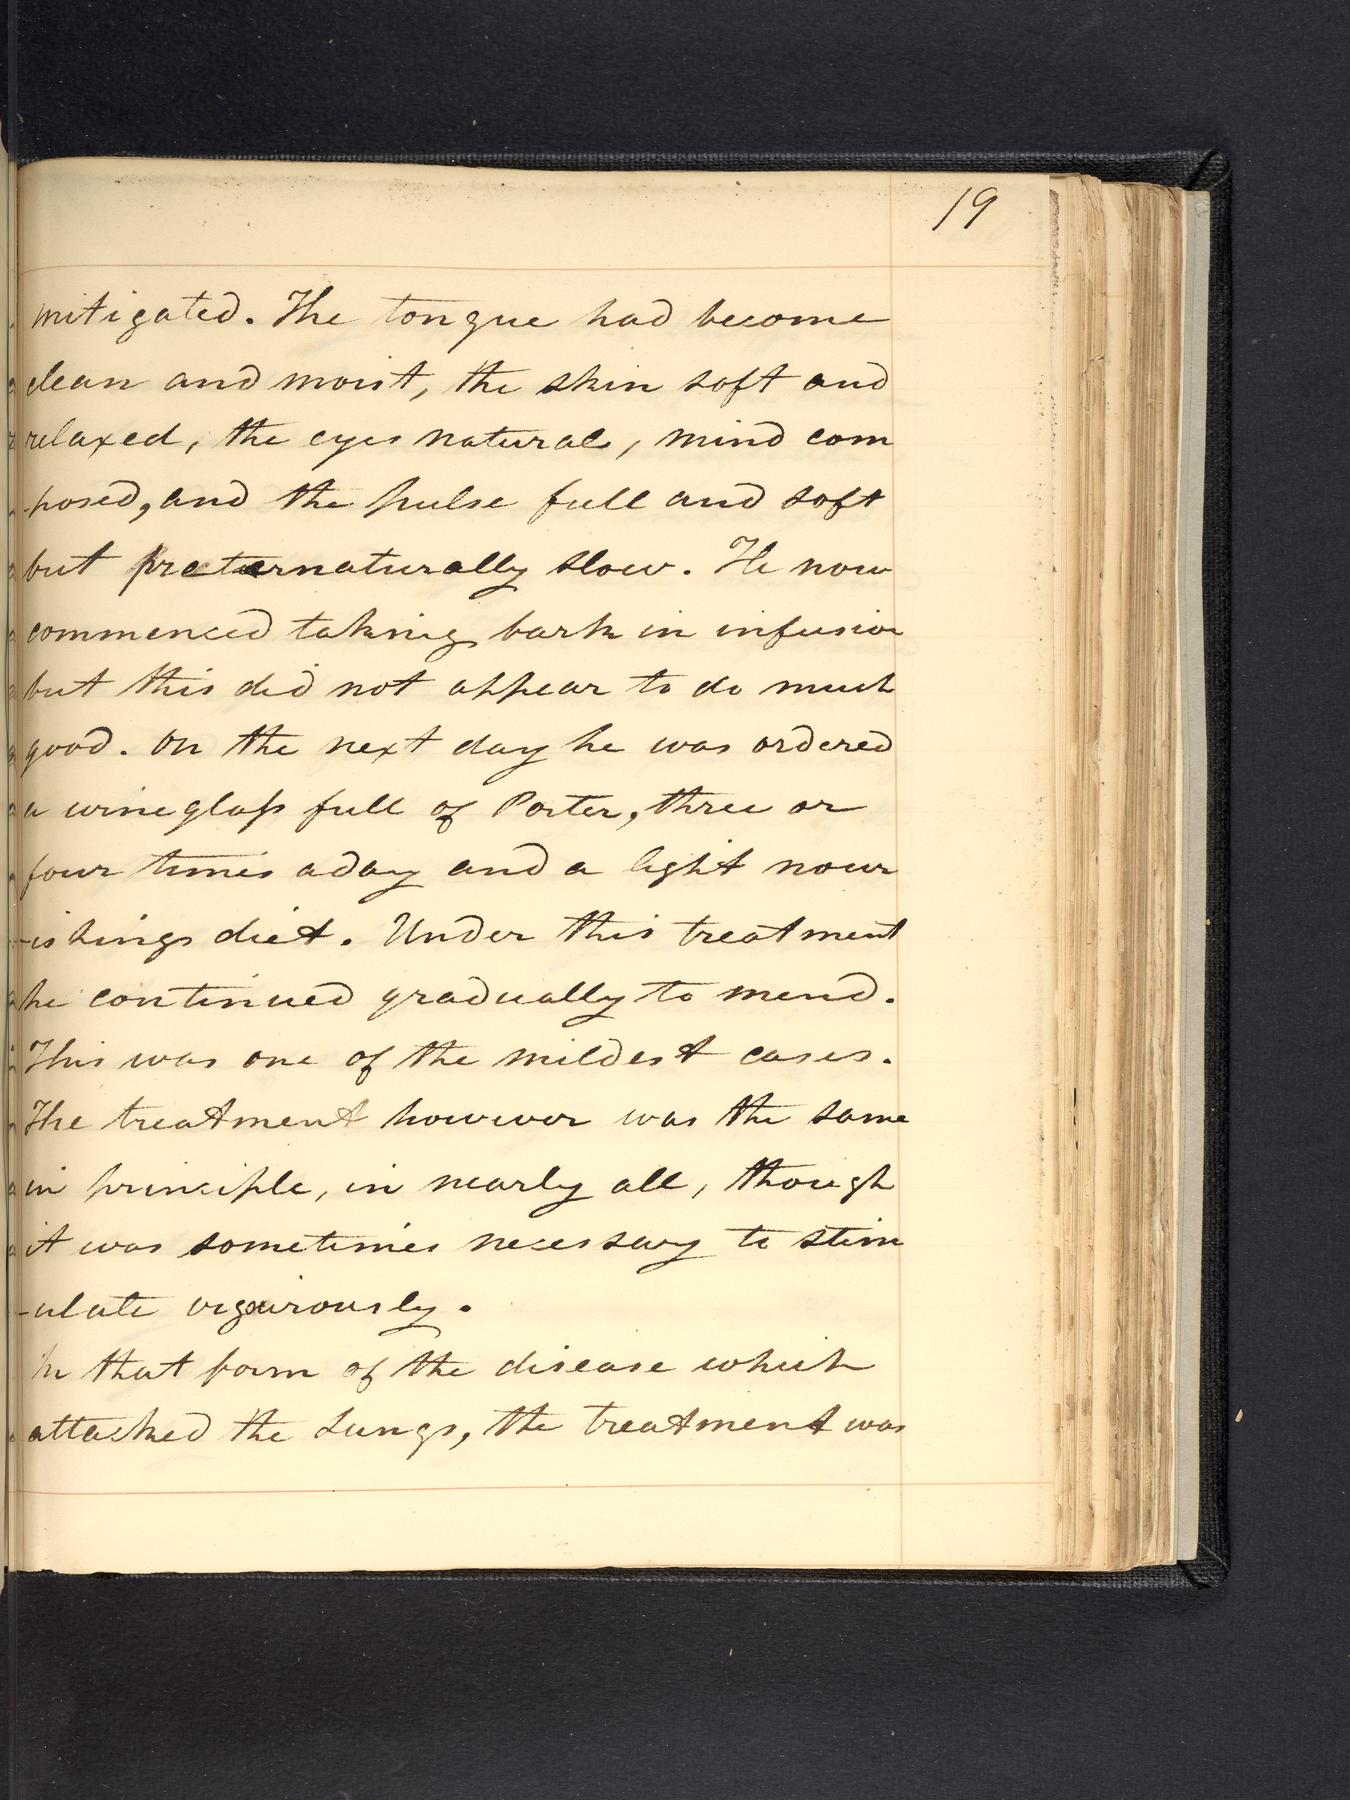 19
mitigated. The tongue had become
clean and moist, the skin soft and
relaxed, the eyes natural, mind com
-posed, and the pulse full and soft
but preternaturally slow. He now
commenced taking bark in infusion
but this did not appear to do much
good. On the next day he was ordered
a wine glass full of Porter, three or
four times a day and a light nour
-ishings diet. Under this treatment
he continued gradually to mend.
This was one of the mildest cases.
The treatment however was the same
in principle, in nearly all, though
it was sometimes necessary to stim
-ulate vigourously.
In that form of the disease which
attacked the Lungs, the treatment was